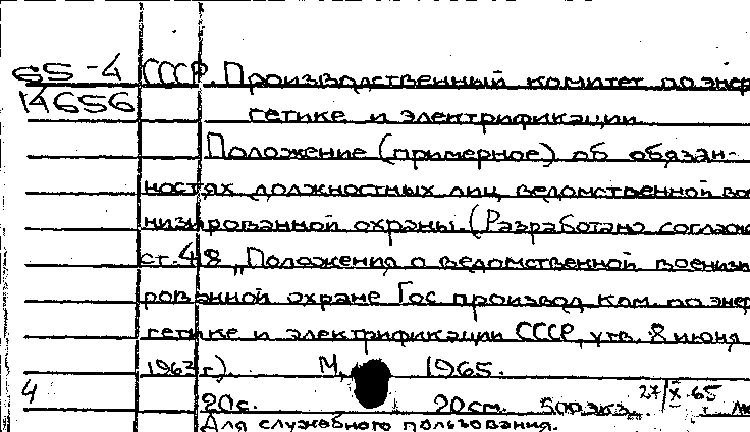 65-4 СССР. Производственный комитет по энер
14656 гетике и электрификации
Положение (примерное) об обязан-
ностях должностных лиц ведомственной во
низированной охраны (Разработано согласно
ст. 48 „Положения о ведомственной военизи
рованной охране Гос производ. ком. по энер
гетике и электрификации СССР, утв. 8 июня
1963 г). М, 1965.
4 27/X.65
20с. 20см. 500экз.
Для служебного пользования.